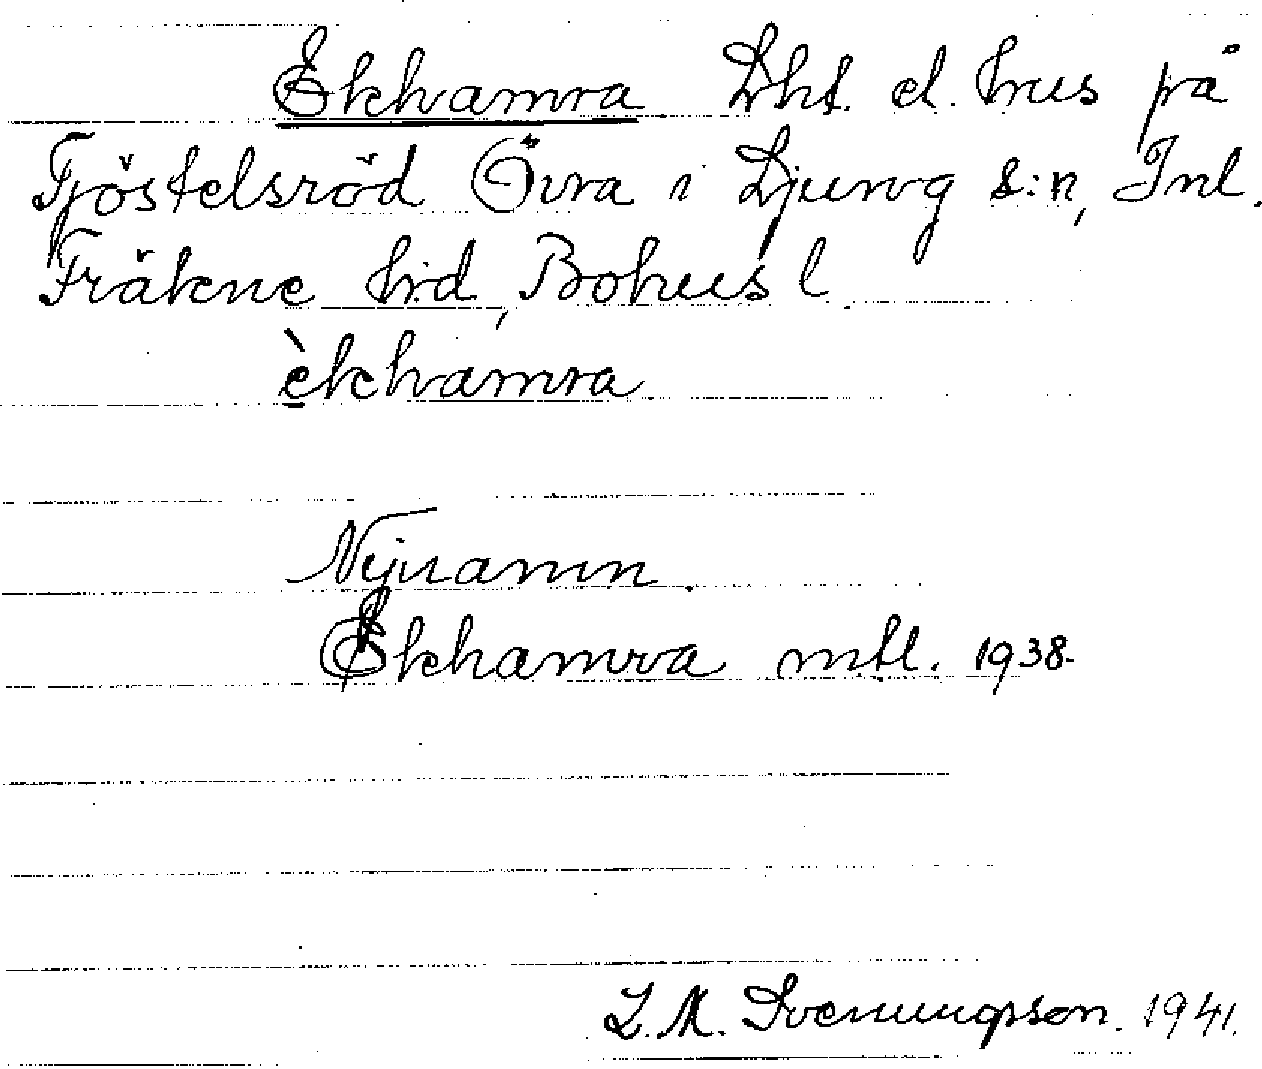 Ekhamra Lht. el. hus på
Tjöstelsröd Övra i Ljung s:n, Inl.
Fräkne hd, Bohus l.
èkhamra
Nynamn.
Ekhamra mtl. 1938.
L. M. Svenungsson. 1941.